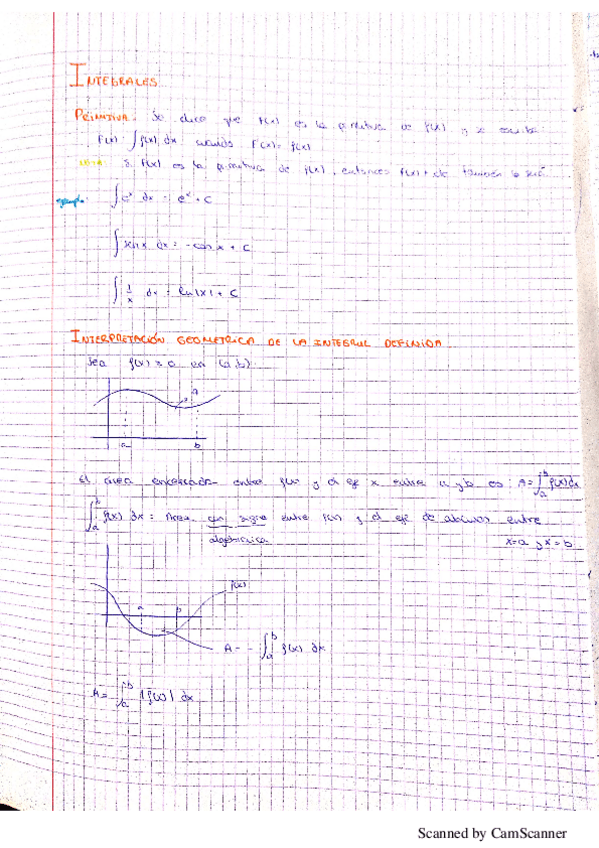 INTEGRALES
PRIMITIVA. Se dice que F(x) es la primitiva de f(x) y se escribe
F(x) = ∫f(x) dx cuando F'(x) = f(x)
Si F(x) es la primitiva de f(x), entonces F(x) + también lo será
ejemplo ∫eˣ dx = eˣ + C
∫sen x dx = -cos x + C
∫ 1/x dx = ln|x| + C
INTERPRETACIÓN GEOMETRICA DE LA INTEGRAL DEFINIDA.
Sea f(x) ≥ 0 en (a,b)
A
a b
El área encerrada entre f(x) y el eje x entre a y b es: A = ∫ₐᵇ f(x) dx
∫ₐᵇ f(x) dx = Area con signo entre f(x) y el eje de abcisas entre
algebraica x=a y x=b
f(x)
a b
A = -∫ₐᵇ f(x) dx
A = ∫ₐᵇ |f(x)| dx
Scanned by CamScanner